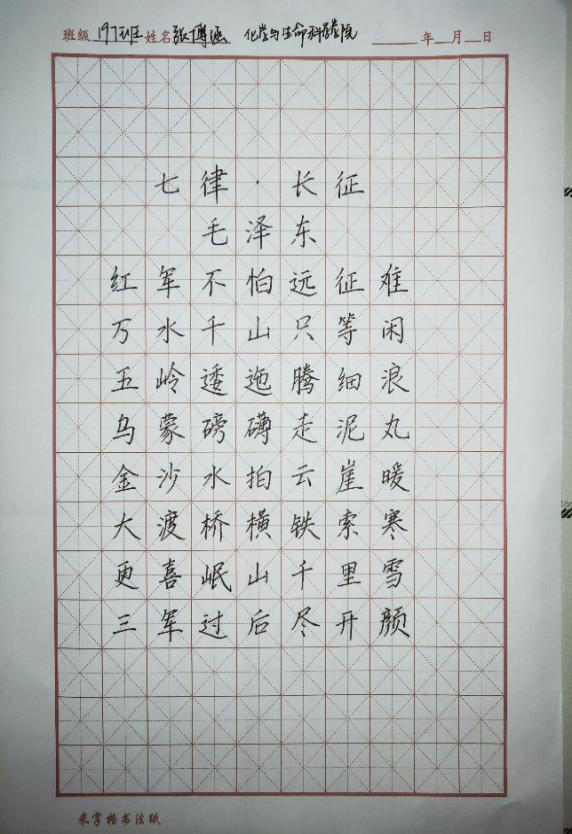 班级 197班 姓名 张博涵 化学与生命科学学院 年 月 日
七律·长征
毛泽东
红军不怕远征难
万水千山只等闲
五岭逶迤腾细浪
乌蒙磅礴走泥丸
金沙水拍云崖暖
大渡桥横铁索寒
更喜岷山千里雪
三军过后尽开颜
米字格书法纸